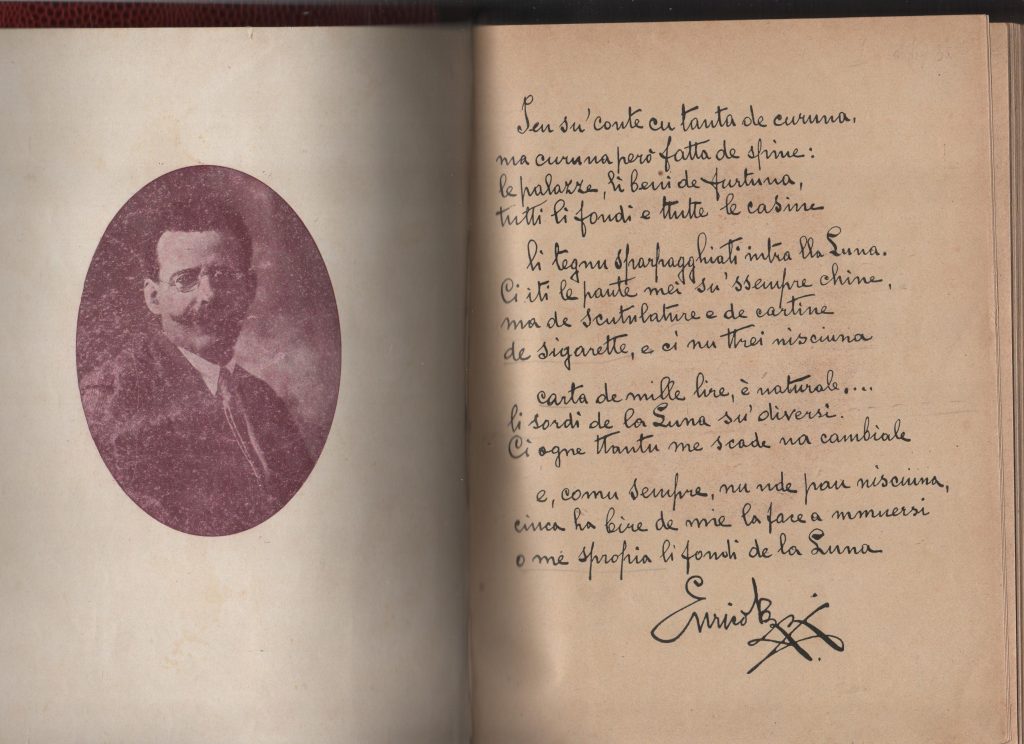 Jeu su' conte cu tanta de curuna,
ma curuna però fatta de spine:
le palazze, li beni de furtuna,
tutti li fondi e tutte le casine
li tegnu sparpagghiati intra lla Luna.
Ci iti le paute mei su' ssempre chine,
ma de scutulature e de cartine
de sigarette, e ci nu ttrei nisciuna
carta de mille lire, è naturale....
li sordi de la Luna su' diversi.
Ci ogne ttantu me scade na cambiale
e, comu sempre, nu nde pau nisciuna,
cinca ha bire de mie la face a mmuersi
o me spropia li fondi de la Luna